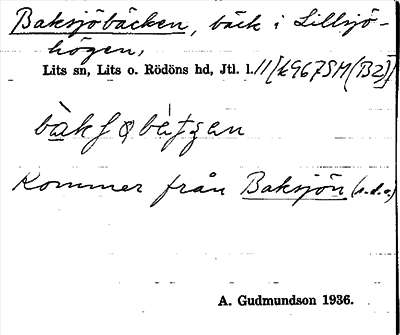 Baksjöbäcken, bäck i Lillsjö-
högen,
Lits sn, Lits o. Rödöns hd, Jtl. l. //[k967SM(B2)]
Kommer från Baksjön (s.d.o.)
A. Gudmundson 1936.